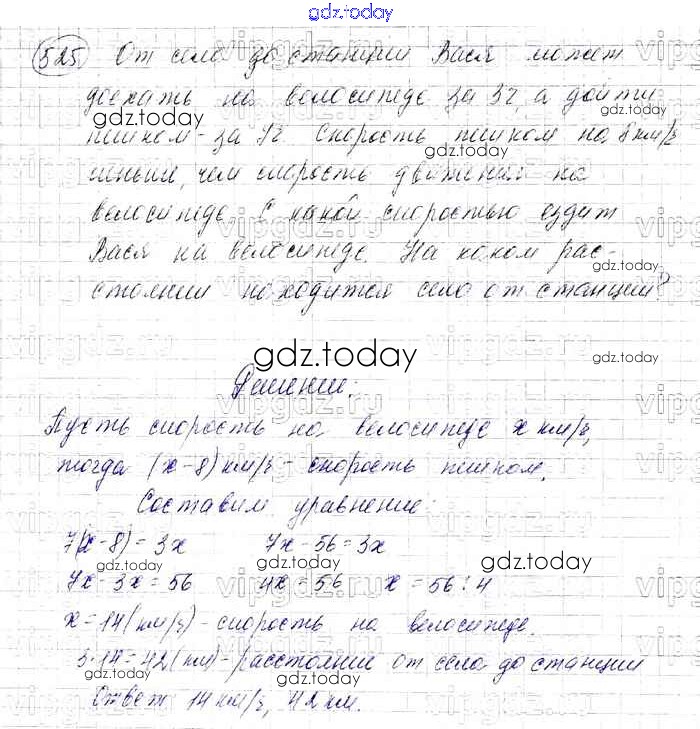 gdz.today
525. От села до станции Вася может
доехать на велосипеде за 3ч, а дойти
пешком - за 7ч. Скорость пешком на 8 км/ч
меньше, чем скорость движения на
велосипеде. С какой скоростью ездит
Вася на велосипеде. На каком рас-
стоянии находится село от станции?
gdz.today
Решение:
Пусть скорость на велосипеде x км/ч,
тогда (x-8) км/ч - скорость пешком.
Составим уравнение:
7(x-8)=3x 7x-56=3x
gdz.today
7x-3x=56 4x=56 x=56:4
x=14(км/ч) - скорость на велосипеде.
3·14=42(км) - расстояние от села до станции
Ответ 14 км/ч, 42 км.